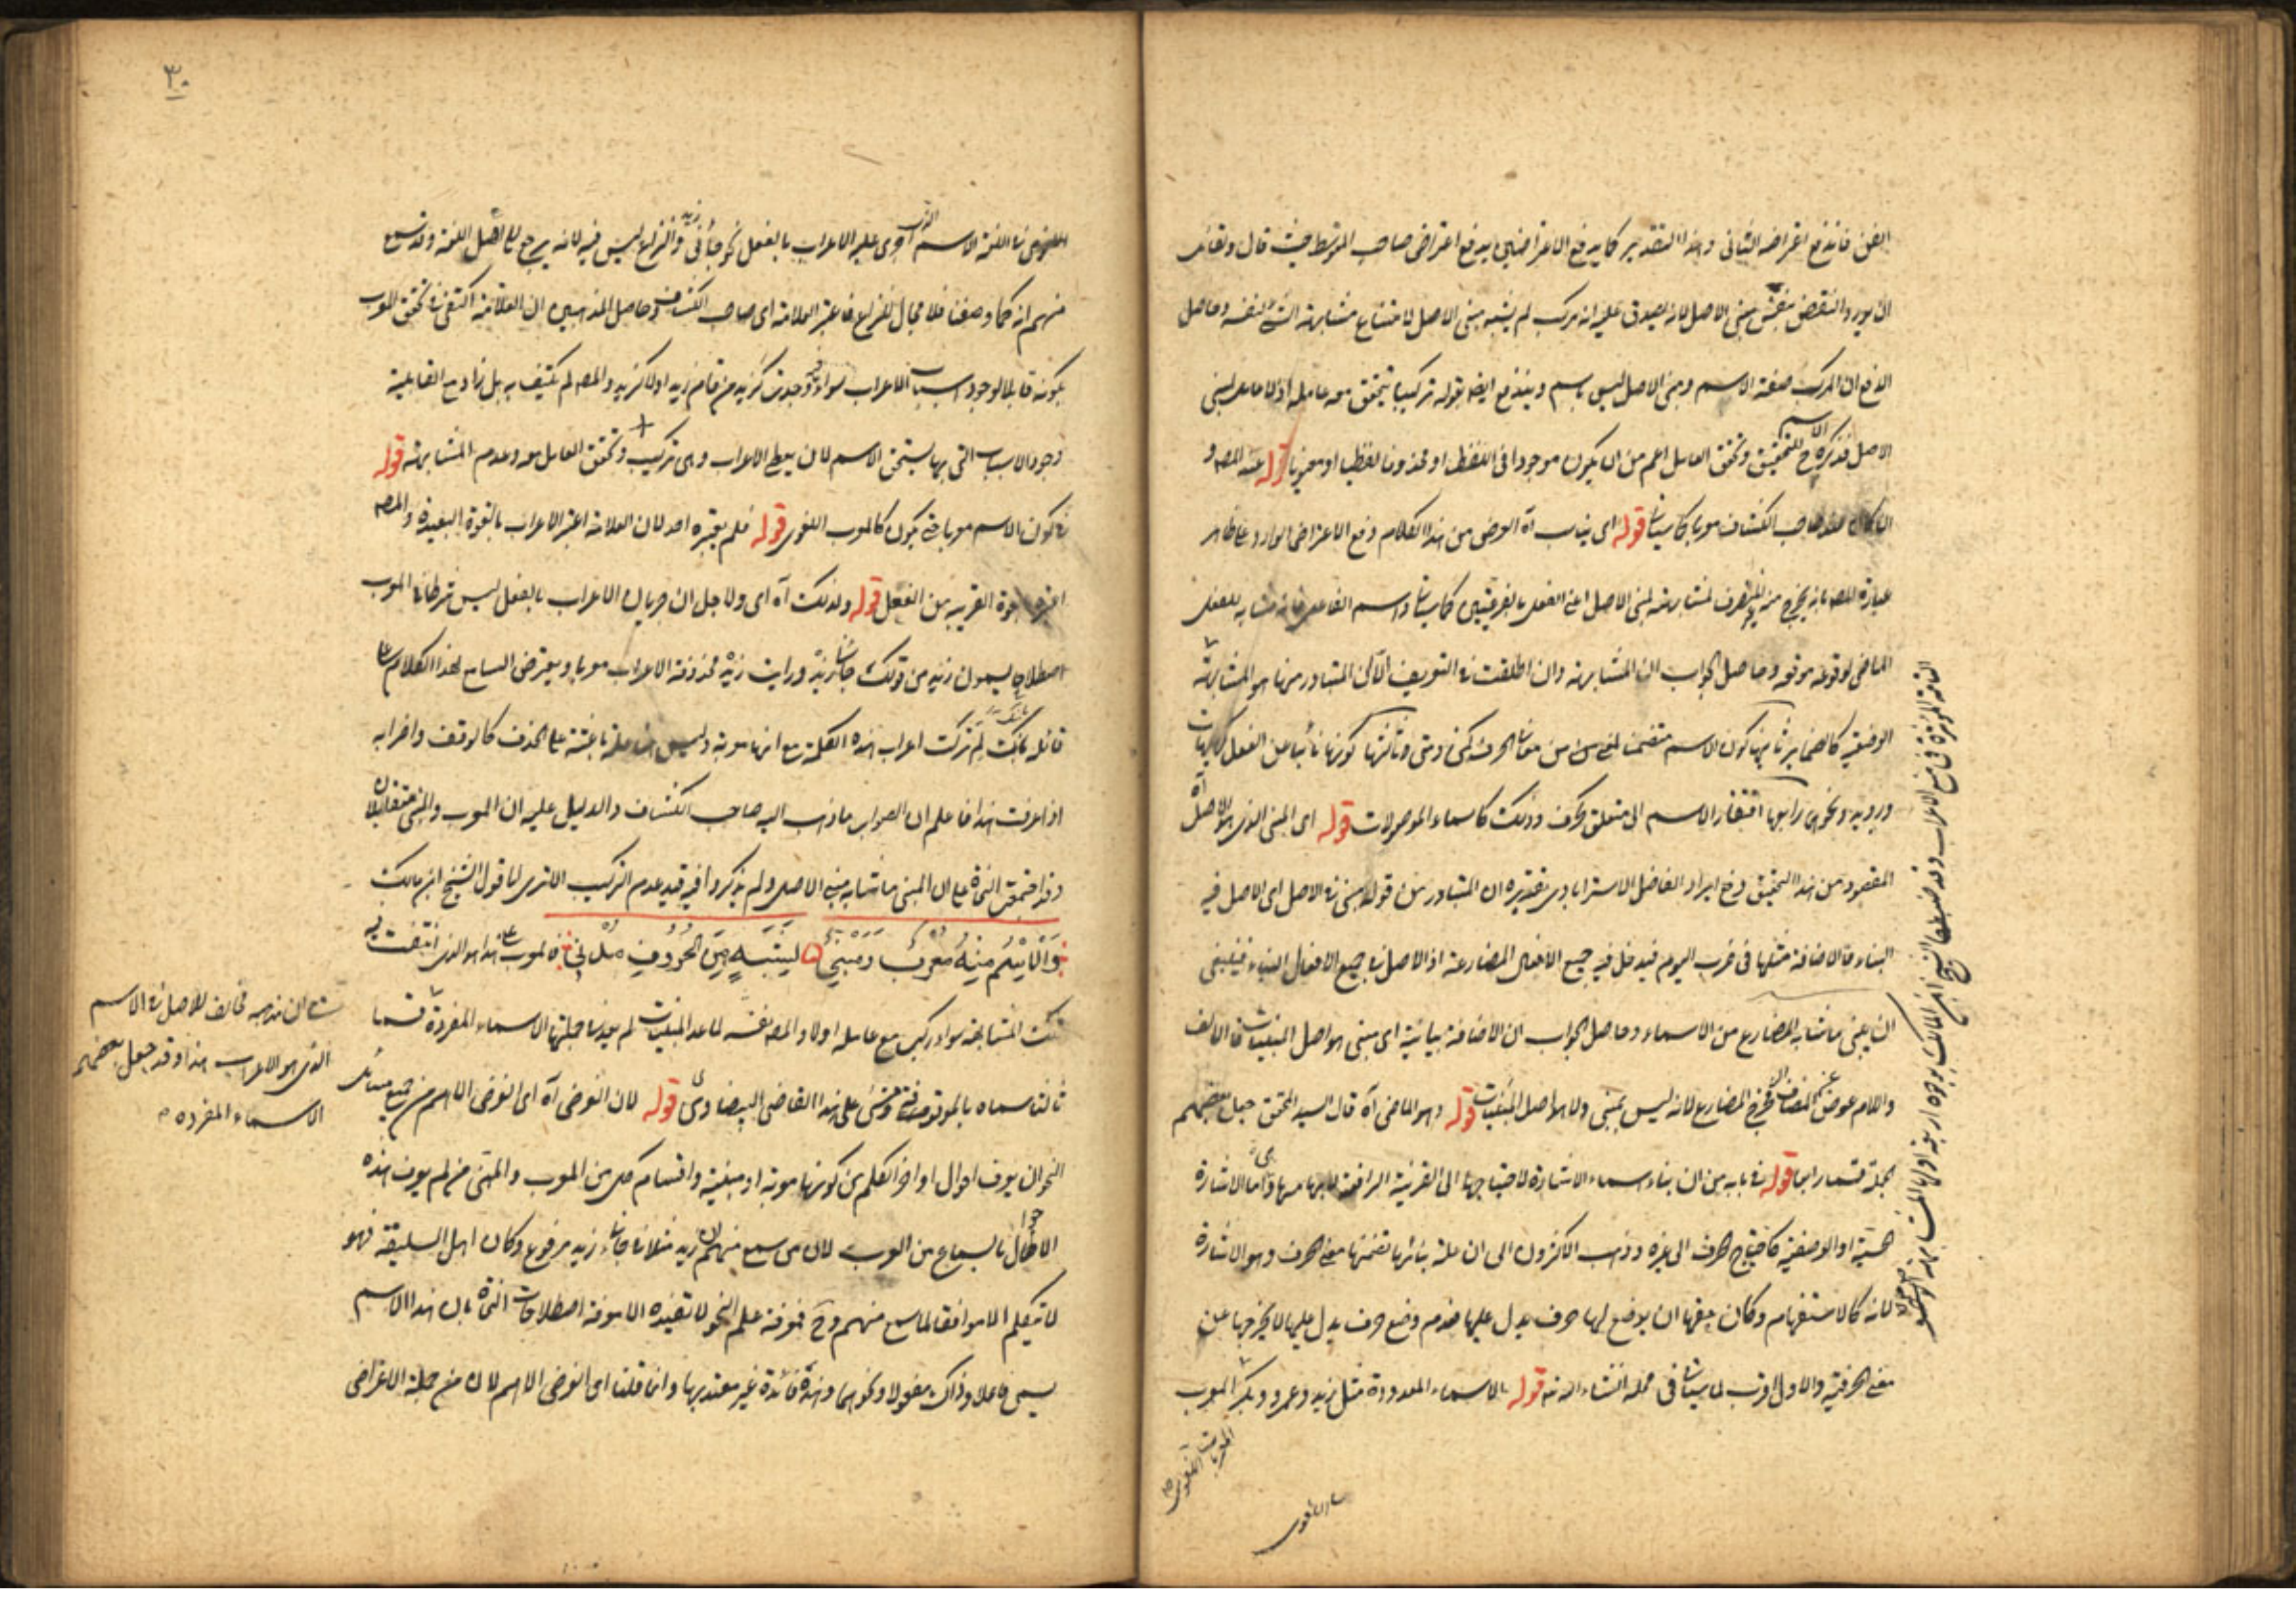 الفن فاندفع اعتراضه الثانی وهذا التقدير كما يدفع الاعتراضين يدفع اعتراض صاحب المتوسط حيث قال ولقائل
ان يورد النقض بنفس مبنی الاصل لانه يصدق عليه انه مركب لم يشبه مبنی الاصل لامتناع مشابهة الشئ لنفسه وحاصل
الدفع ان المركب صفة الاسم ومبنی الاصل ليس باسم ويندفع ايضا بقوله تركيبا يتحقق معه عامله اذ لا عامل لمبنی
الاصل فذكره ح للتحقيق وتحقق العامل اعم من ان يكون موجودا فی اللفظ او محذوفا لفظيا او معنويا قوله عند المص و
ان كان عند صاحب الكشاف معربا كما سيأتی قوله ای يناسب آه الغرض من هذا الكلام دفع الاعتراض الوارد علی ظاهر
عبارة المص بانه يخرج منه غير المنصرف لمشابهته لمبنی الاصل اعنی الفعل بالفرعيتين كما سيأتی واسم الفاعل فانه مشابه للفعل
الماضی لوقوعه موقعه وحاصل الجواب ان المشابهة وان اطلقت فی التعريف لكن المتبادر منها هو المشابهة
الوضعية كالضمائر ثانيها كون الاسم متضمنا لمعنی من معانی الحرف كمن ومتی وثالثها كونها نائبا عن الفعل كهيهات
ورويد ونحوهما رابعها افتقار الاسم الی متعلق كحرف وذلك كاسماء الموصولات قوله ای المبنی الذی هو الاصل آه
المقصود من هذا التحقيق دفع ايراد الفاضل الاسترابادی تقديره ان المتبادر من قوله مبنی فی الاصل ای الاصل فيه
البناء فالاضافة مثلها فی ضرب اليوم فيدخل فيه جميع الافعال المضارعة اذ الاصل فی جميع الافعال البناء فينبغی
ان يبنی ما شابه المضارع من الاسماء وحاصل الجواب ان الاضافة بيانية ای مبنی هو اصل المبنيات فالالف
واللام عوض عن المضاف اليه فخرج المضارع لانه ليس بمبنی ولا هو اصل المبنيات قوله وهو الماضی آه قال السيد المحقق جعل بعضهم
الجملة قسما رابعا قوله فی بابه من ان بناء اسماء الاشارة لاحتياجها الی القرينة الرافعة لابهامها وهی اما الاشارة
الحسية او الوصفية كاحتياج الحرف الی غيره وذهب الاكثرون الی ان علة بنائها تضمنها معنی الحرف وهو الاشارة
لانه كالاستفهام وكان حقها ان يوضع لها حرف يدل عليها فعدم وضع حرف يدل عليها لا يخرجها عن
معنی الحرفية والاول اقرب لما سيأتی فی محله انشاء الله تعه قوله بالاسماء المعدودة مثل زيد وعمرو وبكر المعرب
اللغوی
المعرب اللغوی
العلة المؤثرة فی منع الاعراب وقد ضبطها الشيخ ابن المالك بوجوه اربعة اولها المشابهة
٣٠
اللغوی فی اللغة الاسم الذی اجری عليه الاعراب بالفعل نحو جاءنی زيد والنزاع ليس فيه لانه يرجع الی اهل اللغة وقد سمع
منهم انه كما وصفنا فلا مجال للنزاع فاعتبر العلامة ای صاحب الكشاف وحاصل المذهبين ان العلامة اكتفی فی تحقق المعرب
بكونه قابلا لوجود اسباب الاعراب سواء وجدت كزيد من قام زيد او لا كزيد والمص لم يكتف به بل زاد مع القابلية
وجود الاسباب التی بها يستحق الاسم لان يعطی الاعراب وهی تركيب وتحقق العامل معه وعدم المشابهة قوله
فی كون الاسم معربا حتی يكون كالمعرب اللغوی قوله فلم يعتبره احد لان العلامة اعتبر الاعراب بالقوة البعيدة والمص
اعتبر القوة القريبة من الفعل قوله ولذلك آه ای ولاجل ان جريان الاعراب بالفعل ليس شرطا فی المعرب
اصطلاح يسمون زيد من قولك جاءنی زيد ورايت زيد محذوفة الاعراب معربا ويعترض السامع لهذا الكلام علی
قائله بانك لم تركت اعراب هذه الكلمة مع انها معربة وليس هنا علة باعثة علی الحذف كالوقف واضرابه
اذا عرفت هذا فاعلم ان الصواب ما ذهب اليه صاحب الكشاف والدليل عليه ان المعرب والمبنی متقابلان
وقد اتفق النحاة علی ان المبنی ما شابه مبنی الاصل ولم يذكروا فيه قيد عدم التركيب الا تری لما قول الشيخ ابن مالك
وَالاِسْمُ مِنْهُ مُعْرَبٌ وَمَبْنِیْ لِشَبَهٍ مِنَ الْحُرُوفِ مُدْنِیْ فالمعرب هذا هو الذی انتفت فيه
تلك المشابهة سواء ركب مع عامله اولا والمص نفسه لما عد المبنيات لم يعد من جملتها الاسماء المفردة قسما
ثالثا سماه بالموقوف ومشی علی هذا القاضی البيضاوی قوله لان الغرض آه ای الغرض الاهم من جميع مسائل
النحو ان يعرف احوال اواخر الكلم من كونها معربة او مبنية واقسام كل من المعرب والمبنی من لم يعرف هذه
الاحوال بالسماع من العرب لان من سمع منهم ان زيد مثلا فی جاءنی زيد مرفوع وكان اهل السليقة فهو
لا يتكلم الا موافقا لما سمع منهم وح فمعرفة علم النحو لا تفيده الا معرفة اصطلاحات النحاة بان هذا الاسم
يسمی فاعلا وذاك مفعولا ونحوهما وهذه فائدة غير معتد بها وانما قلنا ای الغرض الاهم لان من جملة الاغراض
ان مذهبه مخالف للاصل فی الاسم
الذی هو الاعراب هذا وقد جعل بعضهم
الاسماء المفرده